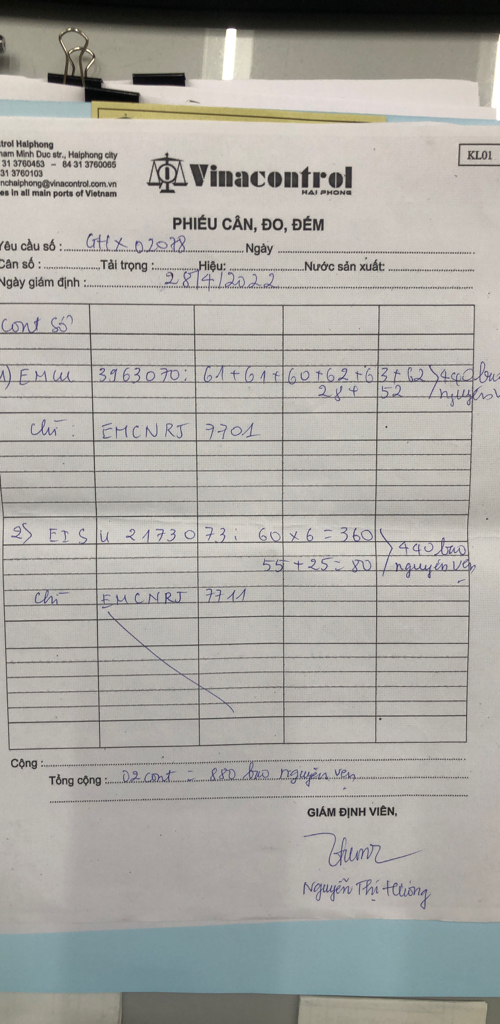 trol Haiphong
ham Minh Duc str., Haiphong city
31 3760453 – 84 31 3760065
31 3760103
nchaiphong@vinacontrol.com.vn
es in all main ports of Vietnam
Vinacontrol
HAI PHONG
KL01
PHIẾU CÂN, ĐO, ĐẾM
Yêu cầu số : GHX 02078 Ngày
Cân số : Tải trọng : Hiệu: Nước sản xuất:
Ngày giám định : 28/4/2022
Cont Số
1) EMCU 3963070: 61+61+60+62+63+62 440 bao
28+ 52 nguyên v
Chì : EMCNRJ 7701
2) EISU 2173073: 60 x 6 = 360
55 + 25 = 80
440 bao
nguyên vẹn
Chì EMCNRJ 7711
Cộng :
Tổng cộng : 02 cont = 880 bao nguyên vẹn
GIÁM ĐỊNH VIÊN,
Nguyễn Thị Hương